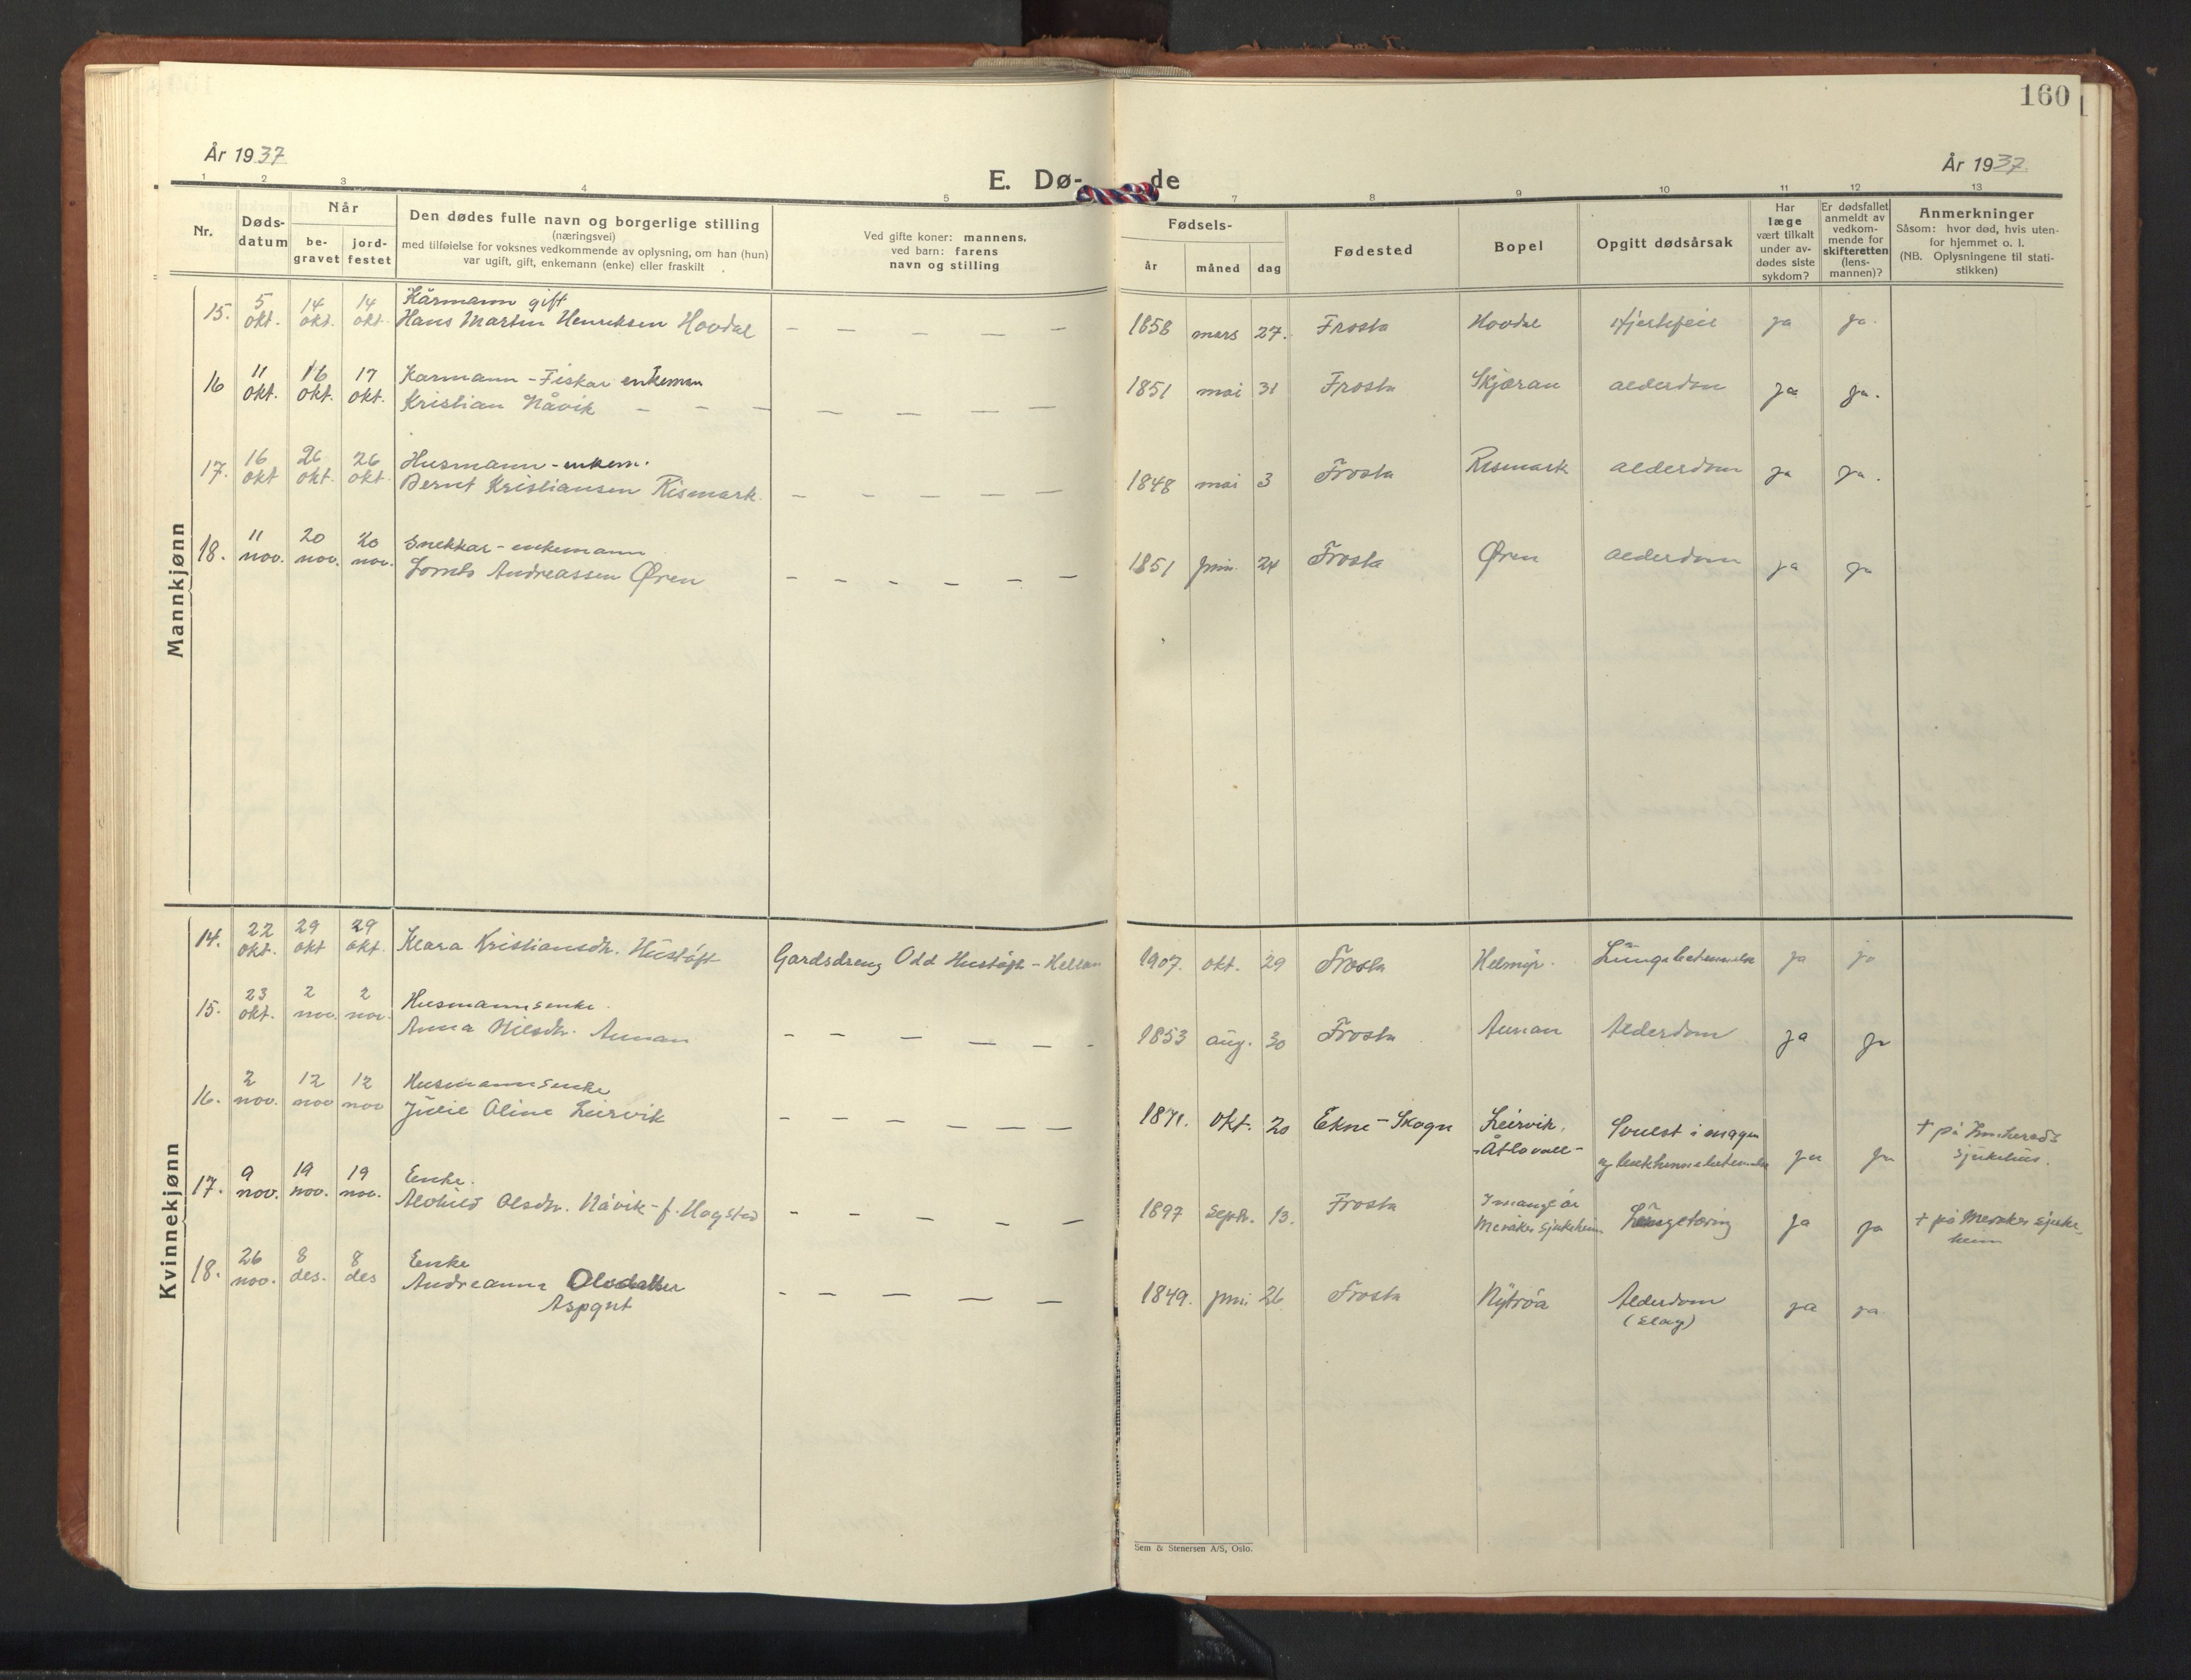 160
År 1937
År 1937
E. Dø- de
1 2 3 4 5 7 8 9 10 11 12 13
Nr.
Døds-
datum
Når
be-
gravet
jord-
festet
Den dødes fulle navn og borgerlige stilling
(næringsvei)
med tilføielse for voksnes vedkommende av oplysning, om han (hun)
var ugift, gift, enkemann (enke) eller fraskilt
Ved gifte koner: mannens,
ved barn: farens
navn og stilling
Fødsels-
år måned dag
Fødested
Bopel
Opgitt dødsårsak
Har
læge
vært tilkalt
under av-
dødes siste
sykdom?
Er dødsfallet
anmeldt av
vedkom-
mende for
skifteretten
(lens-
mannen)?
Anmerkninger
Såsom: hvor død, hvis uten-
for hjemmet o. l.
(NB. Oplysningene til stati-
stikken)
Mannkjønn
15. 5 okt. 14 okt. 14 okt. Kårmann gift
Hans Martin Henriksen Hovdal — — — — — 1858 mars 27. Frosta Hovdal Hjertefeil ja ja.
16 11 okt. 16 okt. 17 okt. Karmann - Fiskar enkeman
Kristian Våvik — — — — — — — 1851 mai 31 Frosta Skjæran alderdom ja ja.
17. 16 okt 26 okt. 26 okt. Husmann - enkem.
Bernt Kristiansen Rismark. — — — — — 1848 mai 3 Frosta Rismark alderdom ja ja.
18. 11 nov. 20 nov. 20 nov. Snekkar - enkemann
Lornts Andreassen Øren — — — — — — 1851 juni 24 Frosta Øren alderdom ja ja
Kvinnekjønn
14. 22 okt. 29 okt 29 okt. Klara Kristiansdtr. Hustøft Gardsdreng Odd Hustøft - 1907. okt. 29 Frosta Helmyr. Lungebetennelse ja ja
15. 23 okt. 2 nov. 2 nov. Husmannsenke.
Anna Nilsdtr. Aunan — — — — — - 1853 aug. 30 Frosta Aunan Alderdom ja ja
16. 2 nov. 12 nov 12 nov Husmannsenke
Julie Aline Leirvik — — — — — — 1871. okt. 20 Ekne - Skogn Leirvik.
- Åtlovall - Svulst i magen
og bukhinnebetennelse ja ja + på Innherreds
sjukehus.
17. 9 nov. 19 nov. 19 nov. Enke.
Alvhild Olsdtr. Våvik - f. Hogstad — — — — — 1897 septr. 13. Frosta I mange år
Meråker sjukeheim Lungetæring ja ja + på Meråker sjuke-
heim
18. 26 nov. 8 des. 8 des Enke
Andreanna Olsdatter
Aspqut — — — — — 1849. juni 26 Frosta Nytrøa Alderdom
(Slag) ja ja.
Sem & Stenersen A/S, Oslo.